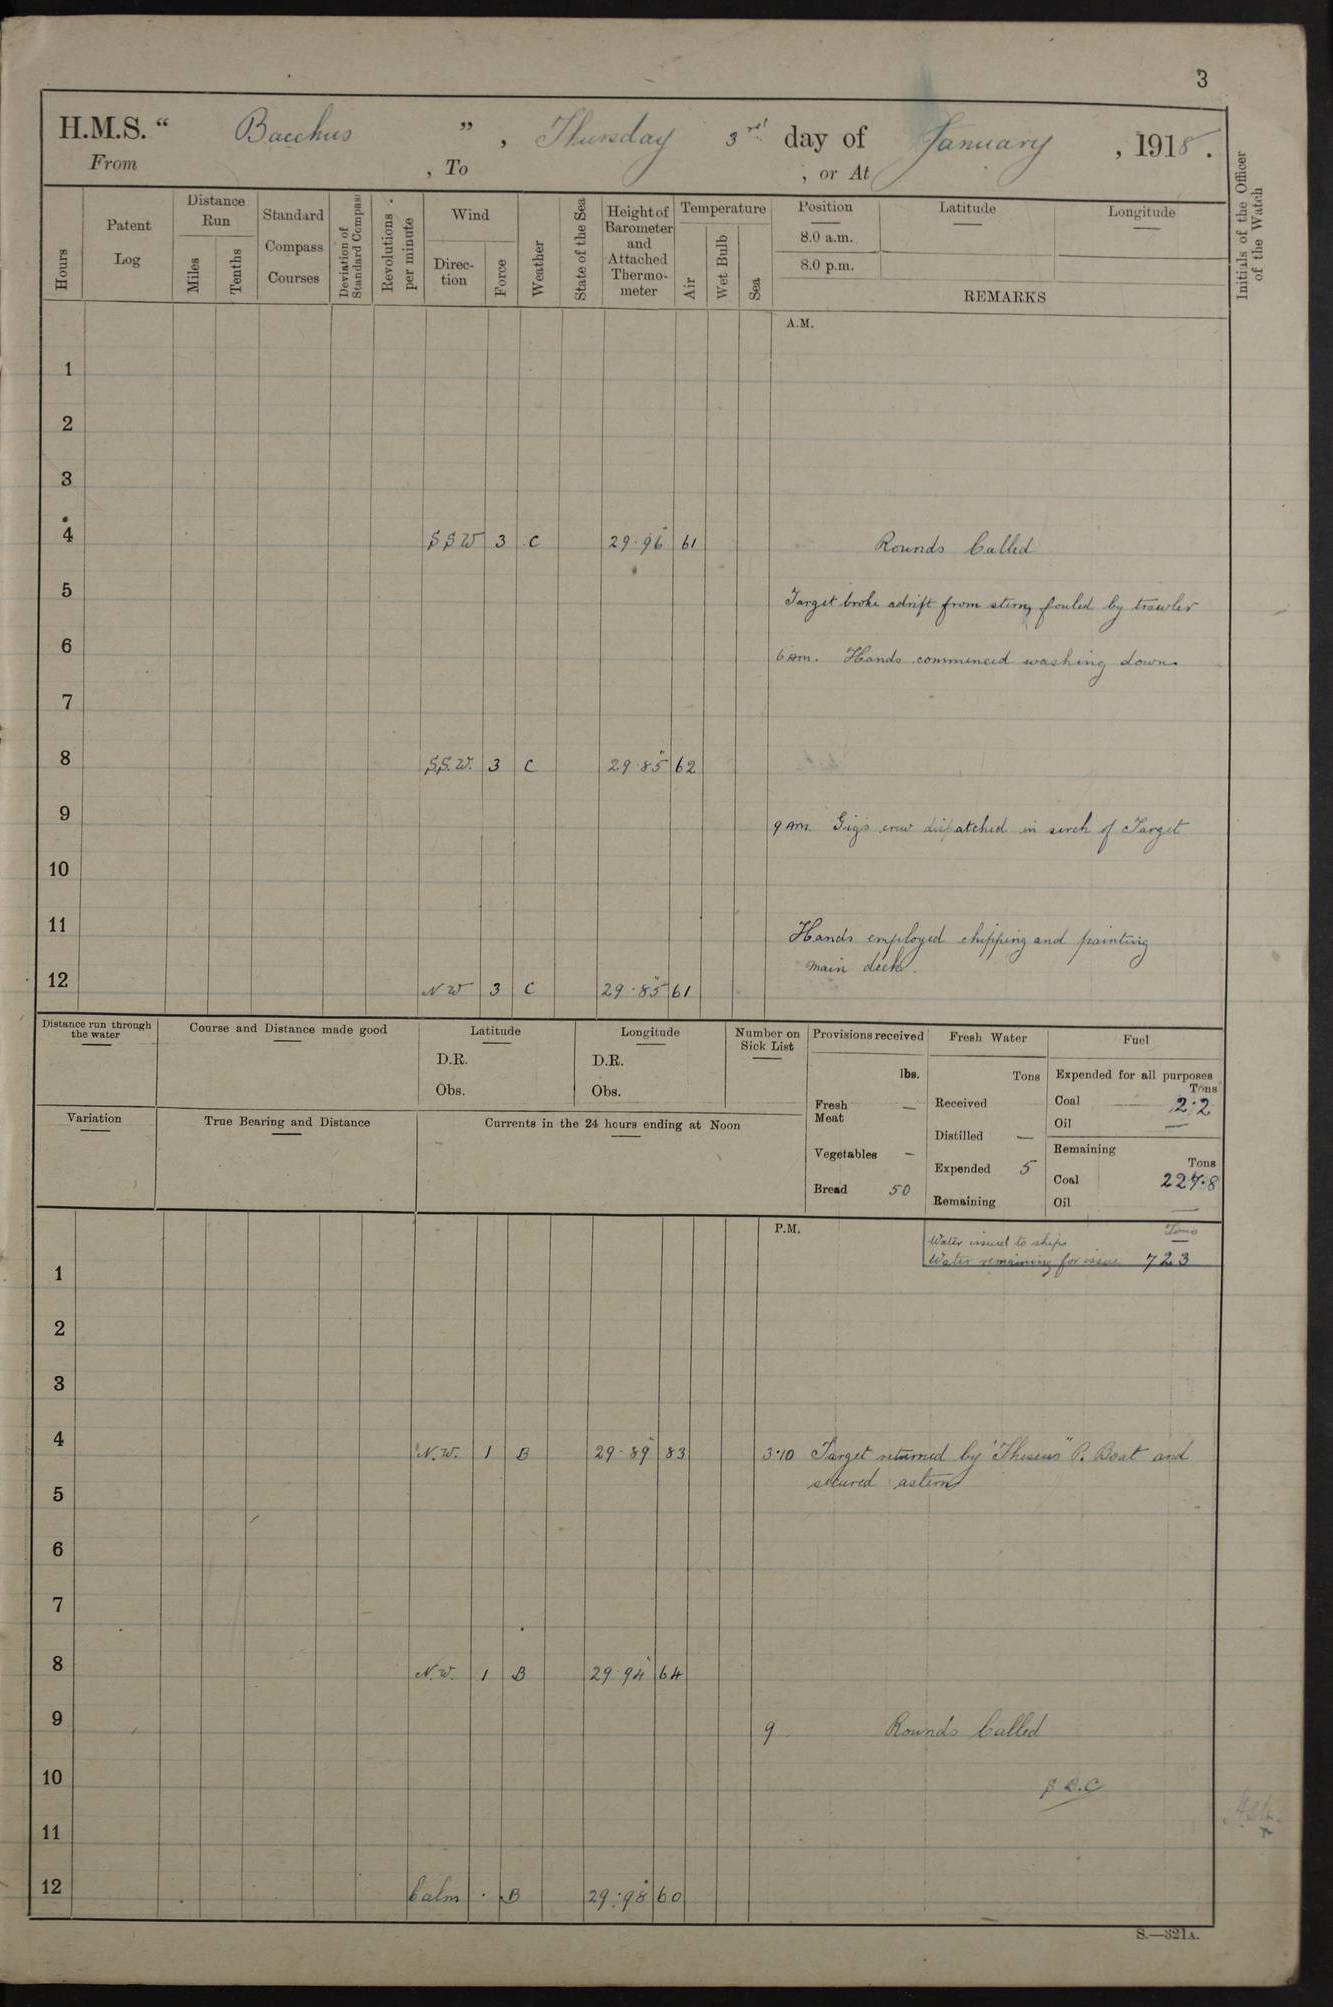 3
H.M.S. “ Bacchus ” , Thursday 3rd day of January , 1918 .
From , To , or At
Hours
Patent Log
Distance Run
Miles
Tenths
Standard Compass Courses
Deviation of Standard Compass
Revolutions per minute
Wind
Direc-tion
Force
Weather
State of the Sea
Height of Barometer and Attached Thermo-meter
Temperature
Air
Wet Bulb
Sea
Position
8.0 a.m.
8.0 p.m.
Latitude
Longitude
REMARKS
Initials of the Officer of the Watch
A.M.
1
2
3
4 S S W 3 C 29·96 61 Rounds Called
5 Target broke adrift from stern, fouled by trawler
6 6 AM. Hands commenced washing down.
7
8 S.S.W. 3 C 29·85 62
9 9 AM. Gig's crew dispatched in serch of Target
10
11 Hands employed chipping and painting
main deck.
12 N W 3 C 29·85 61
Distance run through the water
Course and Distance made good
Latitude
D.R.
Obs.
Longitude
D.R.
Obs.
Number on Sick List
Provisions received
lbs.
Fresh Meat —
Vegetables —
Bread 50
Fresh Water
Tons
Received
Distilled —
Expended 5
Remaining
Fuel
Expended for all purposes
Tons
Coal 2·2
Oil —
Remaining
Tons
Coal 227·8
Oil —
Variation
True Bearing and Distance
Currents in the 24 hours ending at Noon
P.M.
Tons
Water issued to ships —
Water remaining for issue 723
1
2
3
4 N.W. 1 B 29·89 83 3·10 Target returned by "Theseus" P. Boat and
secured astern
5
6
7
8 N.W. 1 B 29 94 64
9 9 Rounds Called
10
11
12 Calm · B 29·98 60
S.—321A.